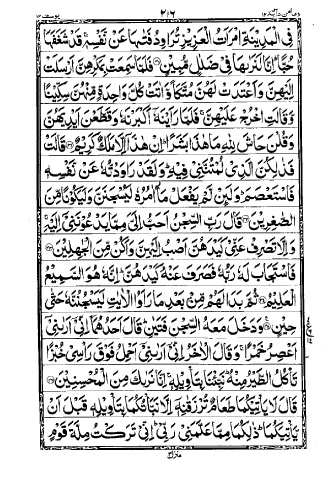 وما من دآبة ١٢ ٢١٦ يوسف ١٢
فِى الْمَدِيْنَةِ امْرَاَتُ الْعَزِيْزِ تُرَاوِدُ فَتٰىهَا عَنْ نَّفْسِهٖ ۚ قَدْ شَغَفَهَا
حُبًّا ؕ اِنَّا لَنَرٰىهَا فِىْ ضَلٰلٍ مُّبِيْنٍ ﴿۳۰﴾ فَلَمَّا سَمِعَتْ بِمَكْرِهِنَّ اَرْسَلَتْ
اِلَيْهِنَّ وَاَعْتَدَتْ لَهُنَّ مُتَّكَاً وَّاٰتَتْ كُلَّ وَاحِدَةٍ مِّنْهُنَّ سِكِّيْنًا
وَّقَالَتِ اخْرُجْ عَلَيْهِنَّ ۚ فَلَمَّا رَاَيْنَهٗۤ اَكْبَرْنَهٗ وَقَطَّعْنَ اَيْدِيَهُنَّ
وَقُلْنَ حَاشَ لِلّٰهِ مَا هٰذَا بَشَرًا ؕ اِنْ هٰذَاۤ اِلَّا مَلَكٌ كَرِيْمٌ ﴿۳۱﴾ قَالَتْ
فَذٰلِكُنَّ الَّذِىْ لُمْتُنَّنِىْ فِيْهِ ؕ وَلَقَدْ رَاوَدْتُّهٗ عَنْ نَّفْسِهٖ
فَاسْتَعْصَمَ ؕ وَلَئِنْ لَّمْ يَفْعَلْ مَاۤ اٰمُرُهٗ لَيُسْجَنَنَّ وَلَيَكُوْنًا مِّنَ
الصّٰغِرِيْنَ ﴿۳۲﴾ قَالَ رَبِّ السِّجْنُ اَحَبُّ اِلَىَّ مِمَّا يَدْعُوْنَنِىْۤ اِلَيْهِ ۚ
وَاِلَّا تَصْرِفْ عَنِّىْ كَيْدَهُنَّ اَصْبُ اِلَيْهِنَّ وَاَكُنْ مِّنَ الْجٰهِلِيْنَ ﴿۳۳﴾
فَاسْتَجَابَ لَهٗ رَبُّهٗ فَصَرَفَ عَنْهُ كَيْدَهُنَّ ؕ اِنَّهٗ هُوَ السَّمِيْعُ
الْعَلِيْمُ ﴿۳۴﴾ ثُمَّ بَدَا لَهُمْ مِّنْۢ بَعْدِ مَا رَاَوُا الْاٰيٰتِ لَيَسْجُنُنَّهٗ حَتّٰى
حِيْنٍ ﴿۳۵﴾ وَدَخَلَ مَعَهُ السِّجْنَ فَتَيٰنِ ؕ قَالَ اَحَدُهُمَاۤ اِنِّىْۤ اَرٰىنِىْۤ
اَعْصِرُ خَمْرًا ۚ وَقَالَ الْاٰخَرُ اِنِّىْۤ اَرٰىنِىْۤ اَحْمِلُ فَوْقَ رَاْسِىْ خُبْزًا
تَاْكُلُ الطَّيْرُ مِنْهُ ؕ نَبِّئْنَا بِتَاْوِيْلِهٖ ۚ اِنَّا نَرٰىكَ مِنَ الْمُحْسِنِيْنَ ﴿۳۶﴾
قَالَ لَا يَاْتِيْكُمَا طَعَامٌ تُرْزَقٰنِهٖۤ اِلَّا نَبَّاْتُكُمَا بِتَاْوِيْلِهٖ قَبْلَ اَنْ
يَّاْتِيَكُمَا ؕ ذٰلِكُمَا مِمَّا عَلَّمَنِىْ رَبِّىْ ؕ اِنِّىْ تَرَكْتُ مِلَّةَ قَوْمٍ